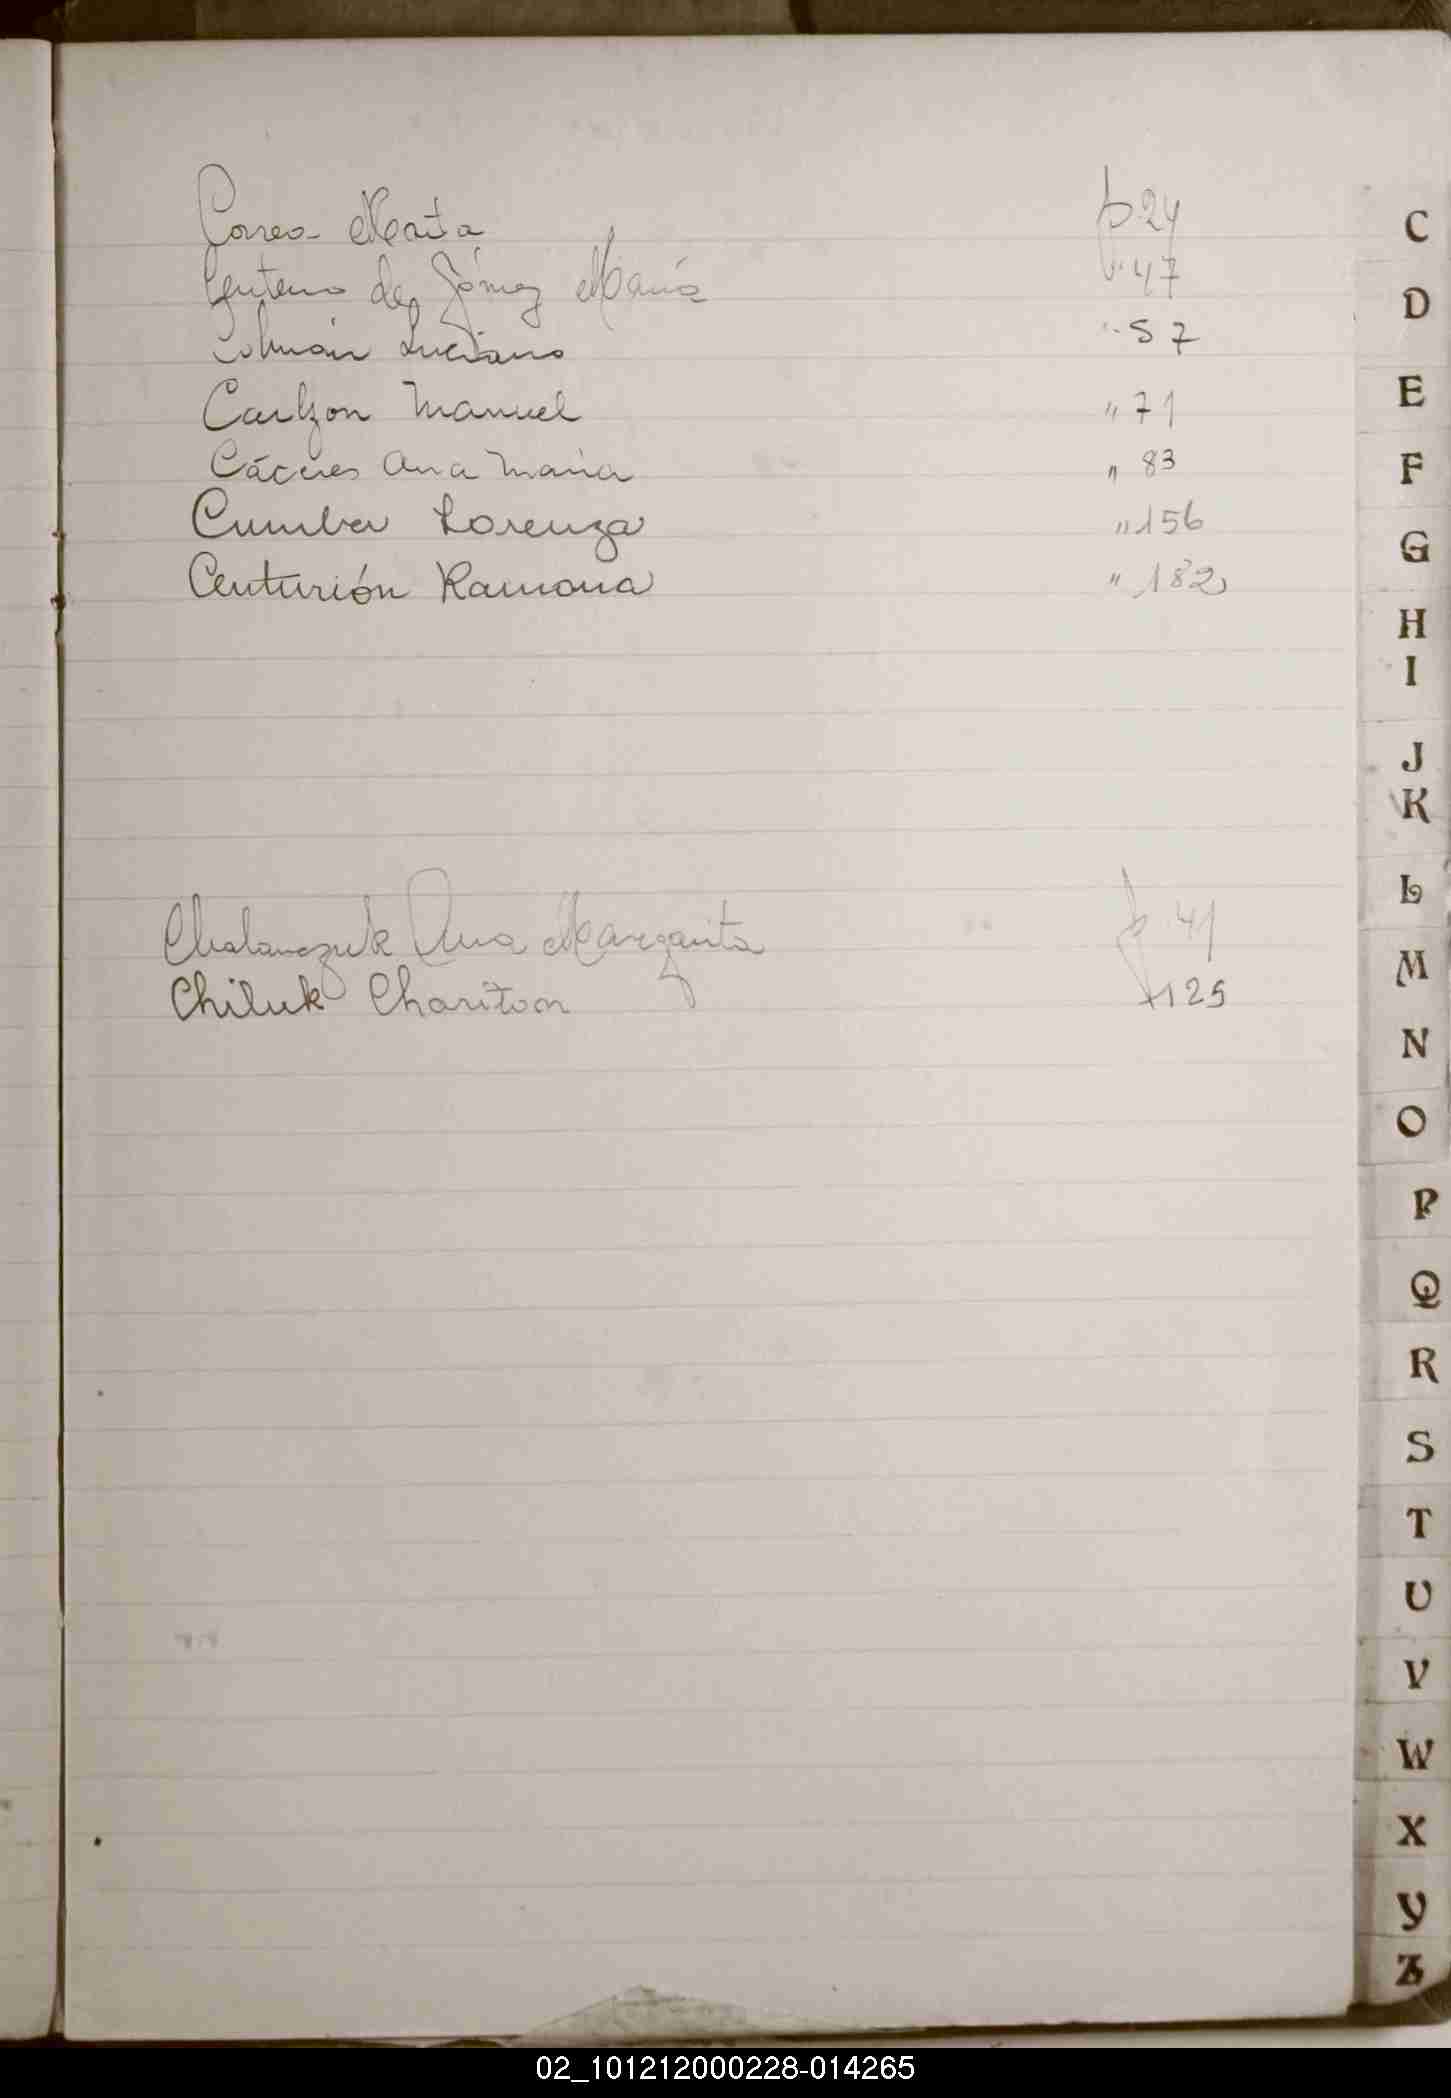 Correa Marta p. 24
Centeno de Gómez María " 47
Colmán Luciano " 57
Carlzon Manuel " 71
Cáceres Ana María " 83
Cumber Lorenza " 156
Centurión Ramona " 182
Chalanczuk Ana Margarita p. 41
Chiluk Chariton 125
C
D
E
F
G
H
I
J
K
L
M
N
O
P
Q
R
S
T
U
V
W
X
Y
Z
02_101212000228-014265